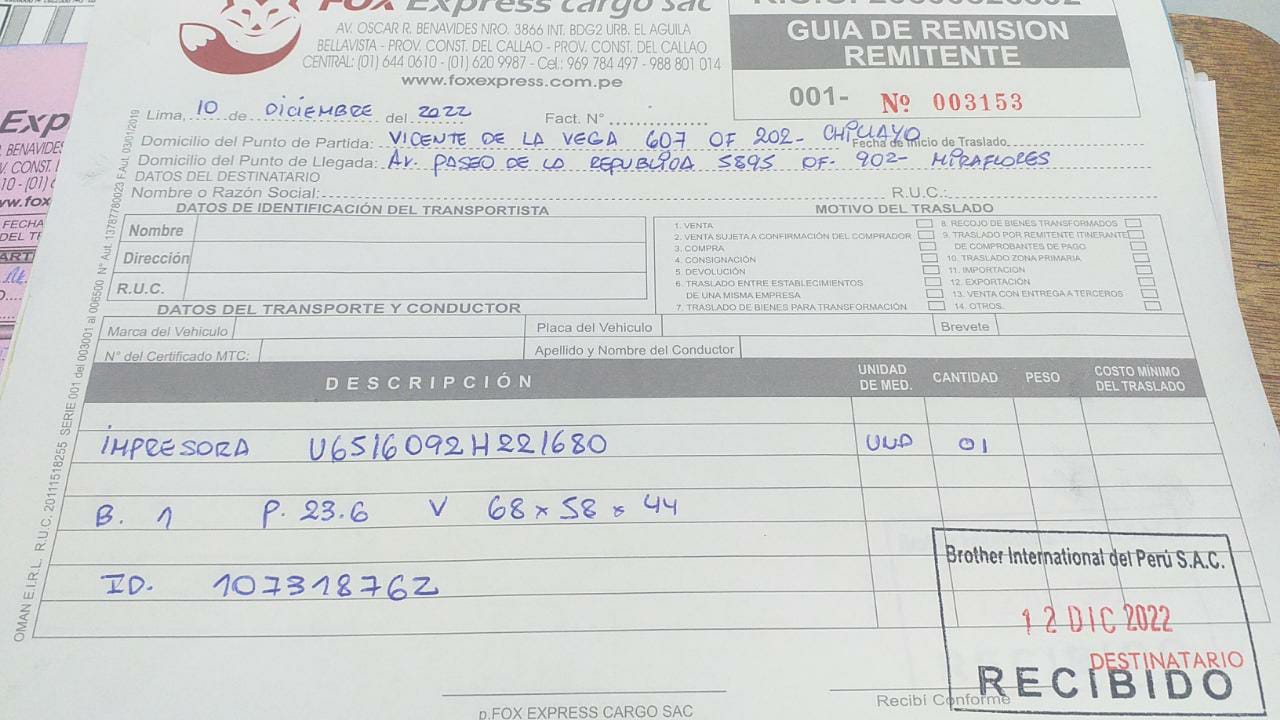 FOX Express cargo sac
AV. OSCAR R. BENAVIDES NRO. 3866 INT. BDG2 URB. EL AGUILA
BELLAVISTA - PROV. CONST. DEL CALLAO - PROV. CONST. DEL CALLAO
CENTRAL: (01) 644 0610 - (01) 620 9987 - Cel.: 969 784 497 - 988 801 014
www.foxexpress.com.pe
GUIA DE REMISION
REMITENTE
001- Nº 003153
Lima, 10 de DICIEMBRE del 2022 Fact. N°
Domicilio del Punto de Partida: VICENTE DE LA VEGA 607 OF 202- CHICLAYO Fecha de Inicio de Traslado
Domicilio del Punto de Llegada: Av. PASEO DE LA REPUBLICA 5895 OF. 902- MIRAFLORES
DATOS DEL DESTINATARIO
Nombre o Razón Social: R.U.C.:
DATOS DE IDENTIFICACIÓN DEL TRANSPORTISTA
Nombre
Dirección
R.U.C.
MOTIVO DEL TRASLADO
1. VENTA
2. VENTA SUJETA A CONFIRMACIÓN DEL COMPRADOR
3. COMPRA
4. CONSIGNACIÓN
5. DEVOLUCIÓN
6. TRASLADO ENTRE ESTABLECIMIENTOS
DE UNA MISMA EMPRESA
7. TRASLADO DE BIENES PARA TRANSFORMACIÓN
8. RECOJO DE BIENES TRANSFORMADOS
9. TRASLADO POR REMITENTE ITINERANTE
DE COMPROBANTES DE PAGO
10. TRASLADO ZONA PRIMARIA
11. IMPORTACION
12. EXPORTACIÓN
13. VENTA CON ENTREGA A TERCEROS
14. OTROS.
DATOS DEL TRANSPORTE Y CONDUCTOR
Marca del Vehiculo Placa del Vehiculo Brevete
N° del Certificado MTC: Apellido y Nombre del Conductor
DESCRIPCIÓN UNIDAD DE MED. CANTIDAD PESO COSTO MÍNIMO DEL TRASLADO
IMPRESORA U6516092H221680 UND 01
B. 1 P. 23.6 V 68 x 58 x 44
ID. 107318762
Brother International del Perú S.A.C.
12 DIC 2022
DESTINATARIO
RECIBIDO
Recibí Conforme
p.FOX EXPRESS CARGO SAC
OMAN E.I.R.L. R.U.C. 20111518255 SERIE 001 del 003001 al 006500 N° Aut. 13787780023 F.Aut. 03/01/2019